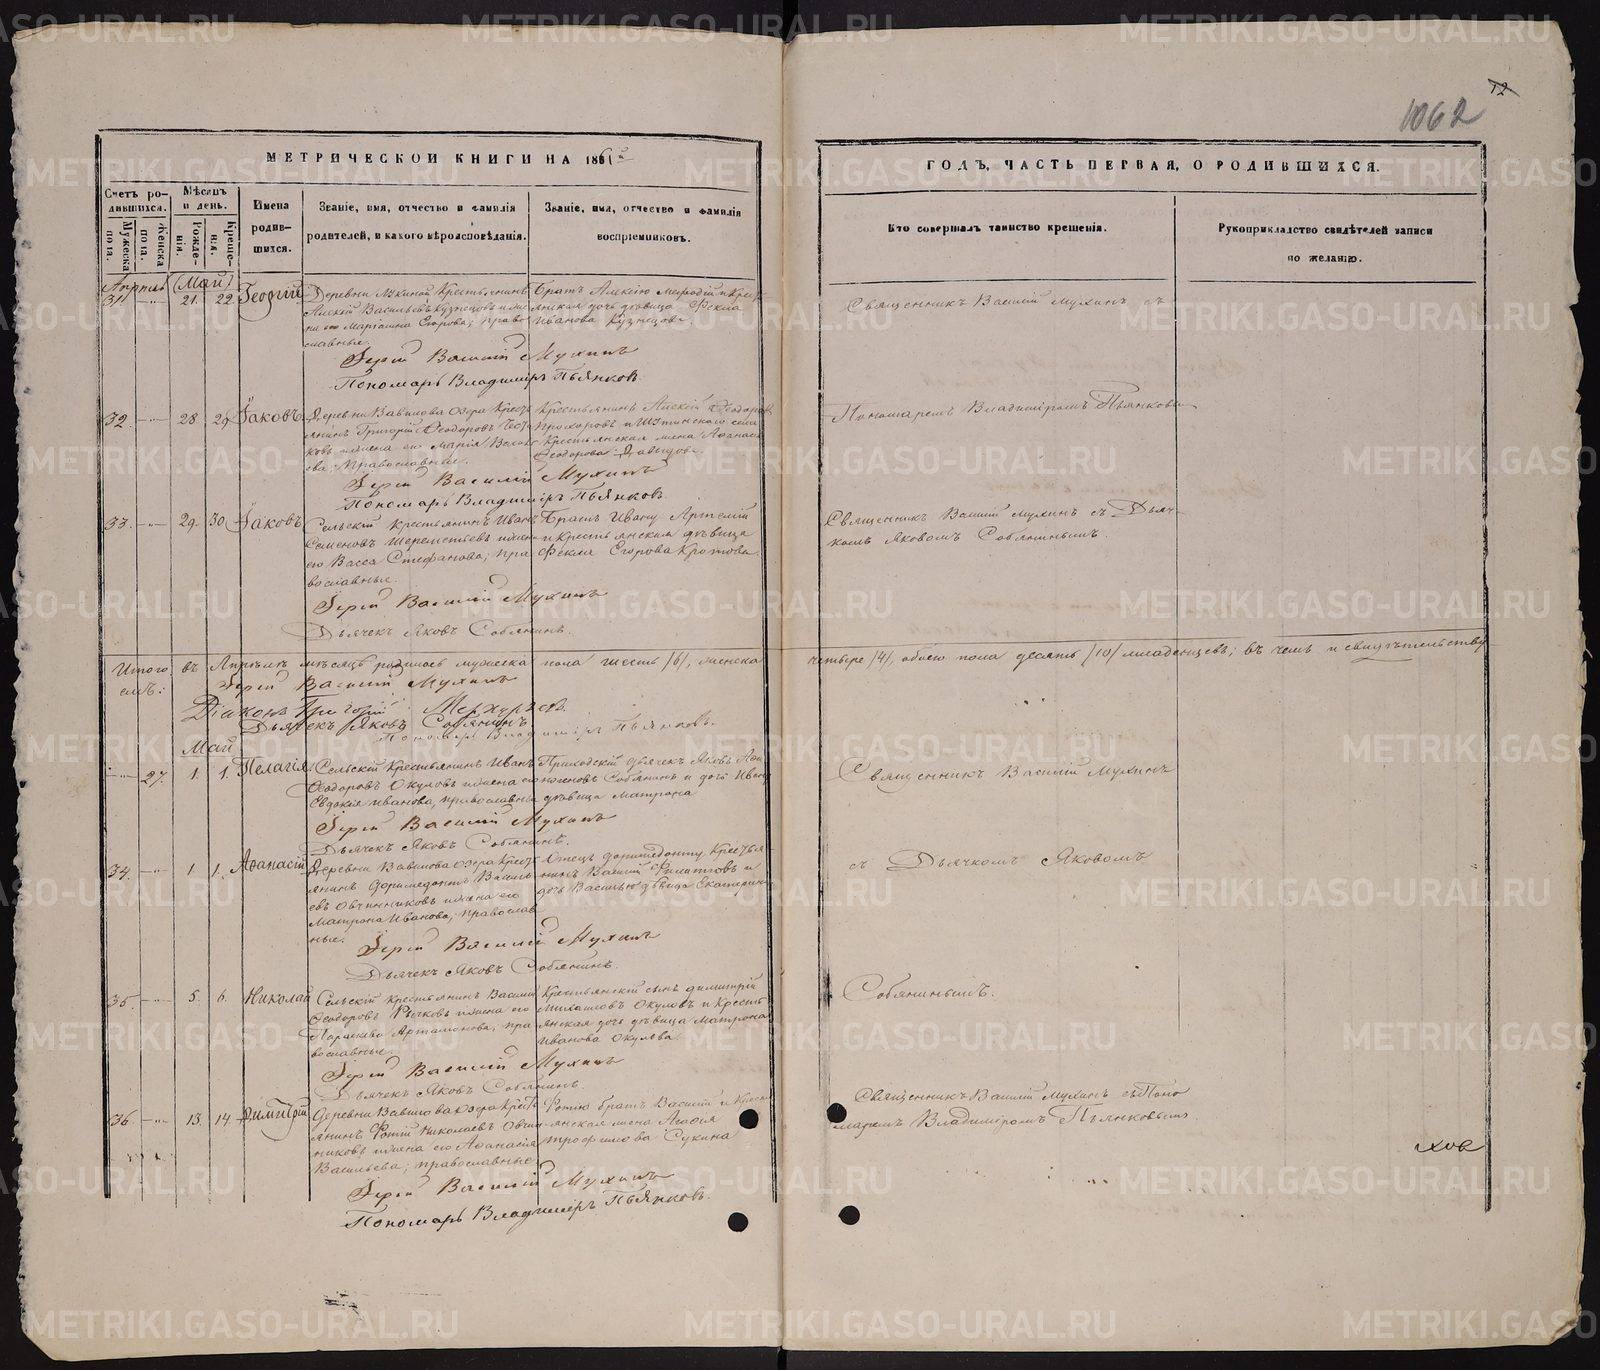 12
1062
МЕТРИЧЕСКОЙ КНИГИ НА 1861й
ГОДЪ, ЧАСТЬ ПЕРВАЯ, О РОДИВШИХСЯ.
Счетъ ро-
дившихся.
Мужеска
пола.
Женска
пола.
Мѣсяцъ
и день.
Рожде-
нія.
Креще-
нія.
Имена
родив-
шихся.
Званіе, имя, отчество и фамилія
родителей, и какого вѣроисповѣданія.
Званіе, имя, отчество и фамилія
воспріемниковъ.
Кто совершалъ таинство крещенія.
Рукоприкладство свидѣтелей записи
по желанію.
Апрѣль (Май)
31. 21. 22. Георгій
Деревни Крестьянинъ
Алексій Васильевъ Кузнецовъ и же-
на его Егорова, право-
славные.
Братъ Алексію
дочь дѣвица Фекла
Иванова Кузнецова.
Священникъ Василій Мухинъ съ
Іерей Василій Мухинъ
Пономарь Владиміръ Пьянковъ
32. 28. 29. Іаковъ
Деревни Вавилова озера Кресть-
янинъ Григорій Ѳеодоровъ
жена его Марія
Православные.
Крестьянинъ Алексій Ѳеодоров
Прохоровъ и села
Крестьянская жена
Ѳеодорова Давыдова.
Пономаремъ Владиміромъ Пьянковы
Іерей Василій Мухинъ
Пономарь Владиміръ Пьянковъ
33. 29. 30. Іаковъ
Сельскій крестьянинъ Иванъ
Семеновъ Шереметьевъ и жена
его Васса Стефанова, пра-
вославные.
Братъ Ивану Артемій
и Крестьянская дѣвица
Фекла Егорова Кротова
Священникъ Василій Мухинъ съ Дьяч-
комъ Яковомъ Собянинымъ.
Іерей Василій Мухинъ
Дьячекъ Яковъ Собянинъ.
Итого въ Апрѣлѣ мѣсяцѣ родилось мужеска пола шесть /6/, женска
четыре /4/, обоего пола десять /10/ младенцевъ; въ чемъ и свидѣтельству-
емъ:
Іерей Василій Мухинъ
Діаконъ Григорій
Дьячекъ Яковъ Собянинъ
Пономарь Владиміръ Пьянковъ.
Май
27. 1. 1. Пелагія
Сельскій Крестьянинъ Иванъ
Ѳеодоровъ Окуловъ и жена его
Евдокія Иванова, православны
Приходскій дьячекъ Яковъ
Собянинъ и дочь Ивана
дѣвица Матрона
Священникъ Василій Мухинъ
Іерей Василій Мухинъ
Дьячекъ Яковъ Собянинъ.
34. 1. 1. Аѳанасій
Деревни Вавилова озера Кресть-
янинъ Доримедонтъ Василь-
евъ Овчинниковъ и жена его
Матрона Иванова, православ-
ные.
Отецъ Доримедонту Крестья-
нинъ Василій Филатовъ и
дочь Василью дѣвица Екатерин
съ Дьячкомъ Яковомъ
Іерей Василій Мухинъ
Дьячекъ Яковъ Собянинъ.
35. 5. 6. Николай
Сельскій крестьянинъ Василій
Ѳеодоровъ Рычковъ и жена его
Параскева Артамонова, пра-
вославные.
Крестьянскій сынъ Димитрій
Михайловъ Окуловъ и Кресть-
янская дочь дѣвица Матрона
Иванова Окулова.
Собянинымъ.
Іерей Василій Мухинъ
Дьячекъ Яковъ Собянинъ.
36. 13. 14. Димитрій
Деревни Вавилова озера Кресть-
янинъ Фотій Николаевъ Овчин-
никовъ и жена его Аѳанасія
Васильева; православные.
Фотію братъ Василій и Кресть-
янская жена Агафія
Трофимова Сукина
Священникъ Василій Мухинъ съ Поно-
маремъ Владиміромъ Пьянковымъ.
Іерей Василій Мухинъ
Пономарь Владиміръ Пьянковъ.
METRIKI.GASO-URAL.RU